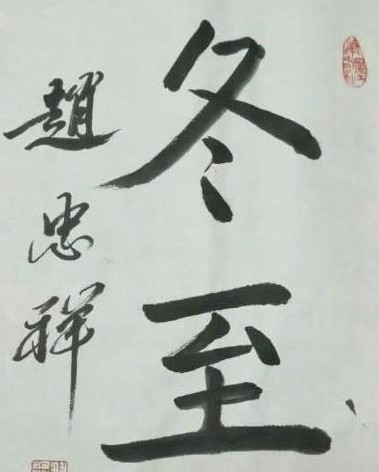 冬至
趙忠祥